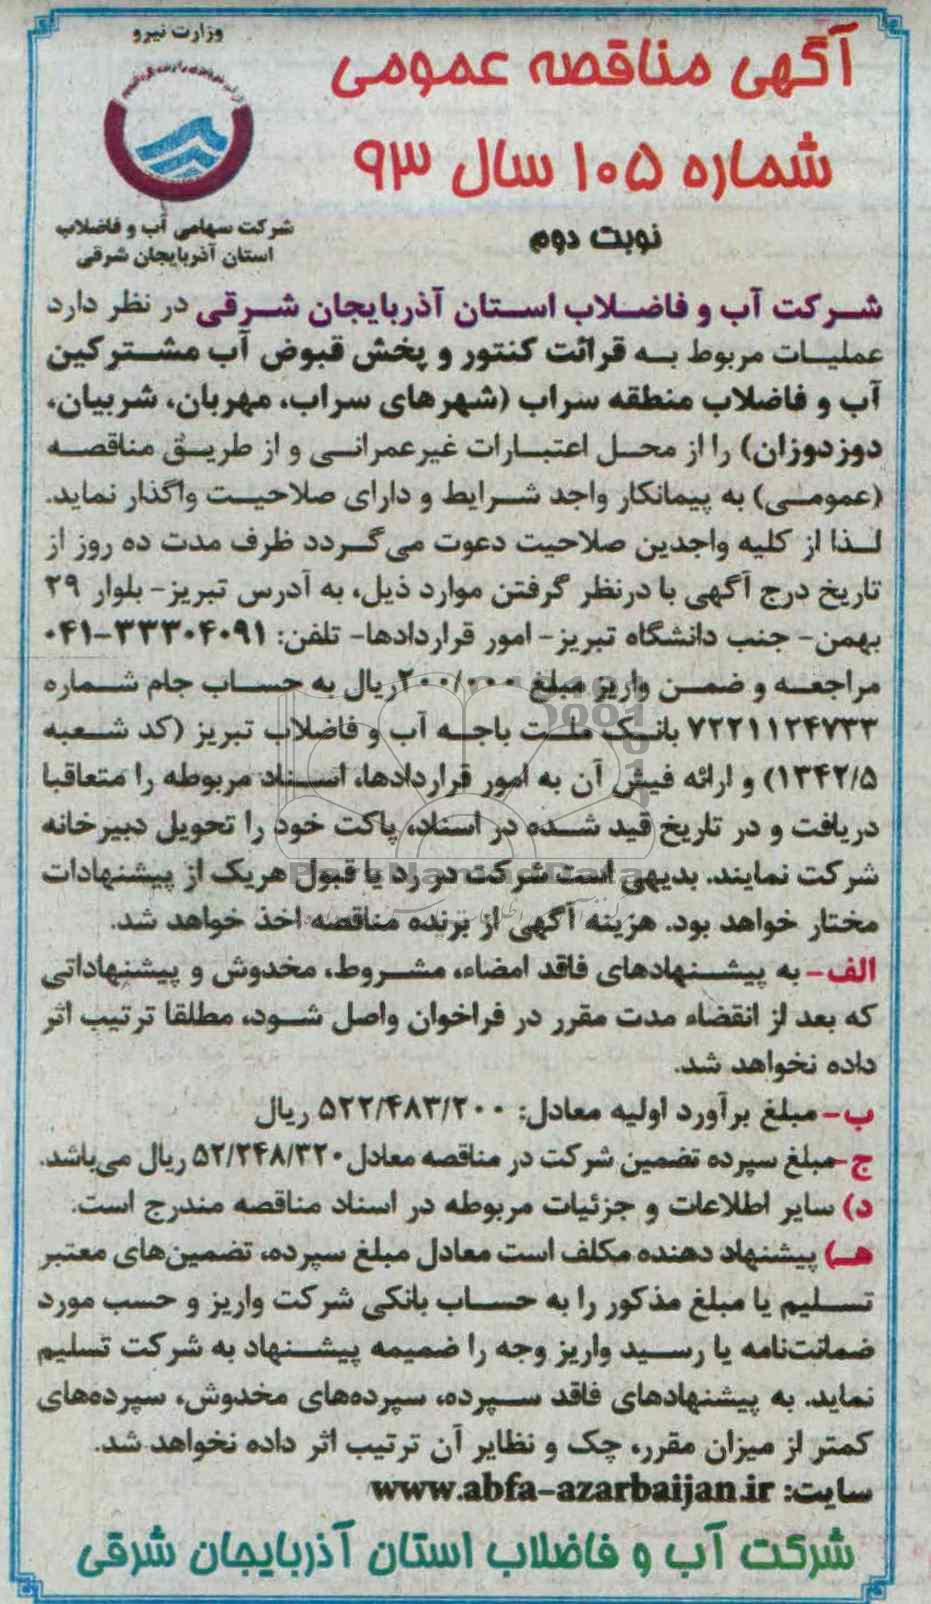 وزارت نیرو
شرکت سهامی آب و فاضلاب
استان آذربایجان شرقی
آگهی مناقصه عمومی
شماره ۱۰۵ سال ۹۳
نوبت دوم
شرکت آب و فاضلاب استان آذربایجان شرقی در نظر دارد
عملیات مربوط به قرائت کنتور و پخش قبوض آب مشترکین
آب و فاضلاب منطقه سراب (شهرهای سراب، مهربان، شربیان،
دوزدوزان) را از محل اعتبارات غیرعمرانی و از طریق مناقصه
(عمومی) به پیمانکار واجد شرایط و دارای صلاحیت واگذار نماید.
لذا از کلیه واجدین صلاحیت دعوت می‌گردد ظرف مدت ده روز از
تاریخ درج آگهی با درنظر گرفتن موارد ذیل، به آدرس تبریز- بلوار ۲۹
بهمن- جنب دانشگاه تبریز- امور قراردادها- تلفن: ۳۳۳۰۴۰۹۱-۰۴۱
مراجعه و ضمن واریز مبلغ ۲۰۰/۰۰۰ریال به حساب جام شماره
۷۲۲۱۱۲۴۷۳۳ بانک ملت باجه آب و فاضلاب تبریز (کد شعبه
۱۳۴۲/۵) و ارائه فیش آن به امور قراردادها، اسناد مربوطه را متعاقبا
دریافت و در تاریخ قید شده در اسناد، پاکت خود را تحویل دبیرخانه
شرکت نمایند. بدیهی است شرکت در رد یا قبول هریک از پیشنهادات
مختار خواهد بود. هزینه آگهی از برنده مناقصه اخذ خواهد شد.
الف- به پیشنهادهای فاقد امضاء، مشروط، مخدوش و پیشنهاداتی
که بعد از انقضاء مدت مقرر در فراخوان واصل شود، مطلقا ترتیب اثر
داده نخواهد شد.
ب- مبلغ برآورد اولیه معادل: ۵۲۲/۴۸۳/۲۰۰ ریال
ج-مبلغ سپرده تضمین شرکت در مناقصه معادل ۵۲/۲۴۸/۳۲۰ ریال می‌باشد.
د) سایر اطلاعات و جزئیات مربوطه در اسناد مناقصه مندرج است.
هـ) پیشنهاد دهنده مکلف است معادل مبلغ سپرده، تضمین‌های معتبر
تسلیم یا مبلغ مذکور را به حساب بانکی شرکت واریز و حسب مورد
ضمانت‌نامه یا رسید واریز وجه را ضمیمه پیشنهاد به شرکت تسلیم
نماید. به پیشنهادهای فاقد سپرده، سپرده‌های مخدوش، سپرده‌های
کمتر از میزان مقرر، چک و نظایر آن ترتیب اثر داده نخواهد شد.
سایت: www.abfa-azarbaijan.ir
شرکت آب و فاضلاب استان آذربایجان شرقی